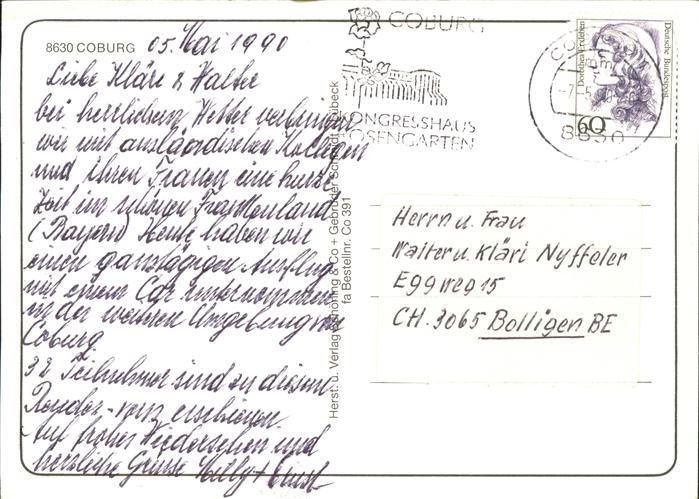 8630 COBURG
05. Mai 1990
Liebe Kläri & Walter
bei herrlichem Wetter verbringen
wir mit ausländischen Kollegen
und ihren Frauen eine kurze
Zeit im schönen Frankenland
(Bayern) Heute haben wir
einen ganztägigen Ausflug
mit einem Car unternommen
in der weiteren Umgebung von
Coburg
32 Teilnehmer sind zu diesem
Rendez-vous erschienen.
Auf frohes Wiedersehen und
herzliche Grüsse Willy + Ernst
Herst. u. Verlag Schöning & Co + Gebrüder Schmidt, Lübeck
fa Bestellnr. Co 391
COBURG
KONGRESSHAUS
ROSENGARTEN
COBURG
8630
Dorothea Erxleben
Deutsche Bundespost
60
Herrn u. Frau
Walter u. Kläri Nyffeler
Eggweg 15
CH-3065 Bolligen BE